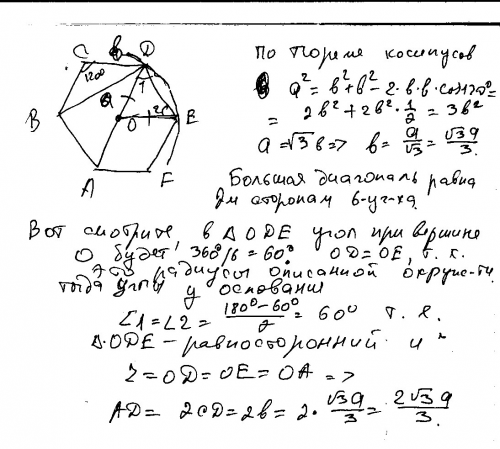 C
b
D
120°
a
1
B
O
2
E
A
F
По теореме косинусов
a² = b² + b² - 2·b·b·cos120°=
= 2b² + 2b²·1/2 = 3b²
a = √3 b => b = a/√3 = √3a/3.
Большая диагональ равна
2м сторонам 6-уг-ка
Вот смотрите в ΔODE угол при вершине
O будет 360°/6 = 60° OD=OE, т.к.
это радиусы описанной окружн-ти
тогда углы у основания
∠1=∠2= (180°-60°)/2 = 60° т.е.
ΔODE - равносторонний и
2=OD=OE=OA =>
AD= 2CD=2b = 2·√3a/3 = 2√3a/3.